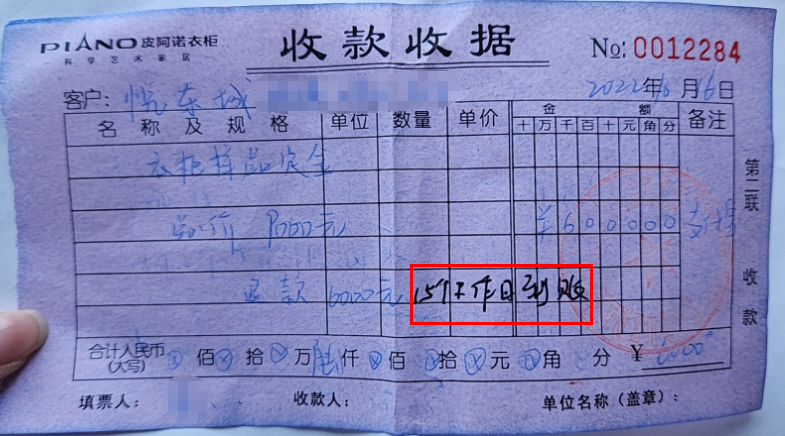 PIANO 皮阿诺衣柜
科学艺术家居
收款收据
No: 0012284
客户: 悦东城
2022年6月6日
名称及规格 单位 数量 单价 金额 备注
十万千百十元角分
衣柜样品定金
总价 9000元
¥600000
退款 6000元 15个工作日到账
第二联 收款
合计人民币(大写) ⊗佰⊗拾⊗万陆仟⊗佰⊗拾⊗元⊗角 分 ¥6000
填票人: 收款人: 单位名称(盖章):